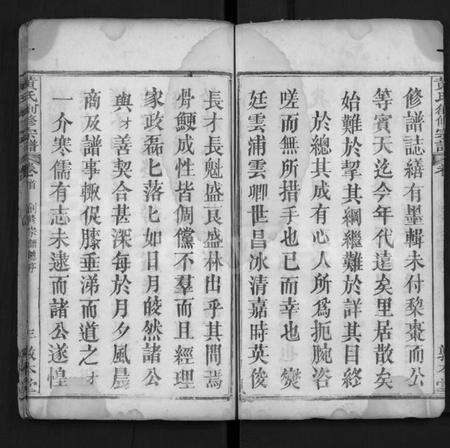 修譜誌繕有墨輯未付棃棗而公
等賓天迄今年代遠矣里居散矣
始難於挈其綱繼難於詳其目終
於總其成有心人所為扼腕咨
嗟而無所措手也已而幸也 變
廷雲浦雲卿世昌冰清嘉時英俊
長才長魁盛良盛林出乎其間焉
骨鯁成性皆倜儻不羣而且經理
家政磊七落七如日月皎然諸公
與才善契合甚深每於月夕風晨
商及譜事輙促膝垂涕而道之才
一介寒儒有志未遂而諸公遂惶
黃氏
修宗譜
卷首
三
敦本堂